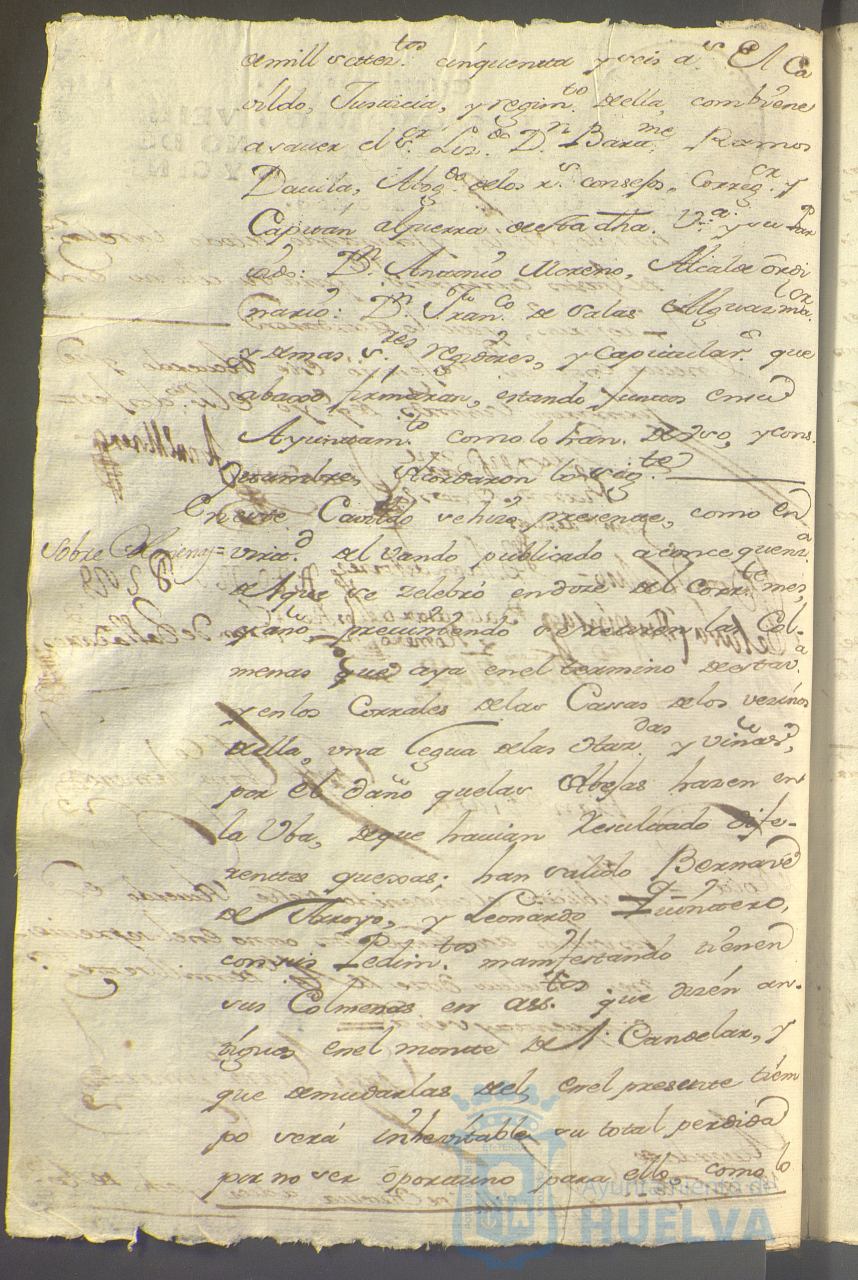 de mill setez.tos cinquenta y seis a.s El Ca
vildo, Justicia, y regim.to de ella, combiene
a saver el S.r Liz.do D.n Bar.me Ramos
Davila, Abog.do de los r.s consejos, Correg.or y
Capitan a Guerra de esta dha. V.a y su Par
tido: D.n Antonio Moreno, Alcalde ordi
nario: D.n Fran.co de Salas Alguazil ma.or
y demas S.res regidores, y Capitular.s que
abaxo firmaran, estando juntos en su
Ayuntam.to como lo han de uso, y cos
tumbre, Acordaron lo sig.te
En este Cavildo se hizo presente, como en
Sobre Colmenas = virtd. del vando publicado a consequenz.a
del que se zelebró en doze del Corr.te mes,
y año, previniendo se retiren las Col-
menas que aya en el termino de esta V.a
y en los Corrales de las Casas de los vezinos
de ella, una legua de las Hazdas. y viñas,
por el daño que las Abejas hazen en
la Uba, de que havian resultado dife-
rentes quexas; han salido Bernave
de Arroyo, y Leonardo Quintero,
con sus Pedim.tos manifestando tienen
sus Colmenas en ass.tos que dizen an-
tiguos en el monte de S. Candelar, y
que de mudarlas del, en el presente tiem
po será inhevitable su total perdida
por no ser oportuno para ello, como lo
Ayuntamiento de
HUELVA